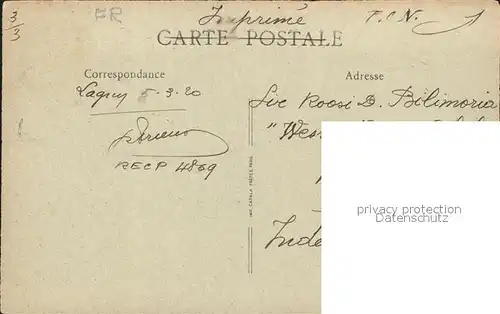 3/3 FR Imprimé T.C.N. 1
CARTE POSTALE
Correspondance
Adresse
Lagny 5-3-20
RECP 4869
Sir Roosi D. Bilimoria
"Wes
Inde
IMP. CATALA FRÈRES, PARIS
privacy protection
Datenschutz